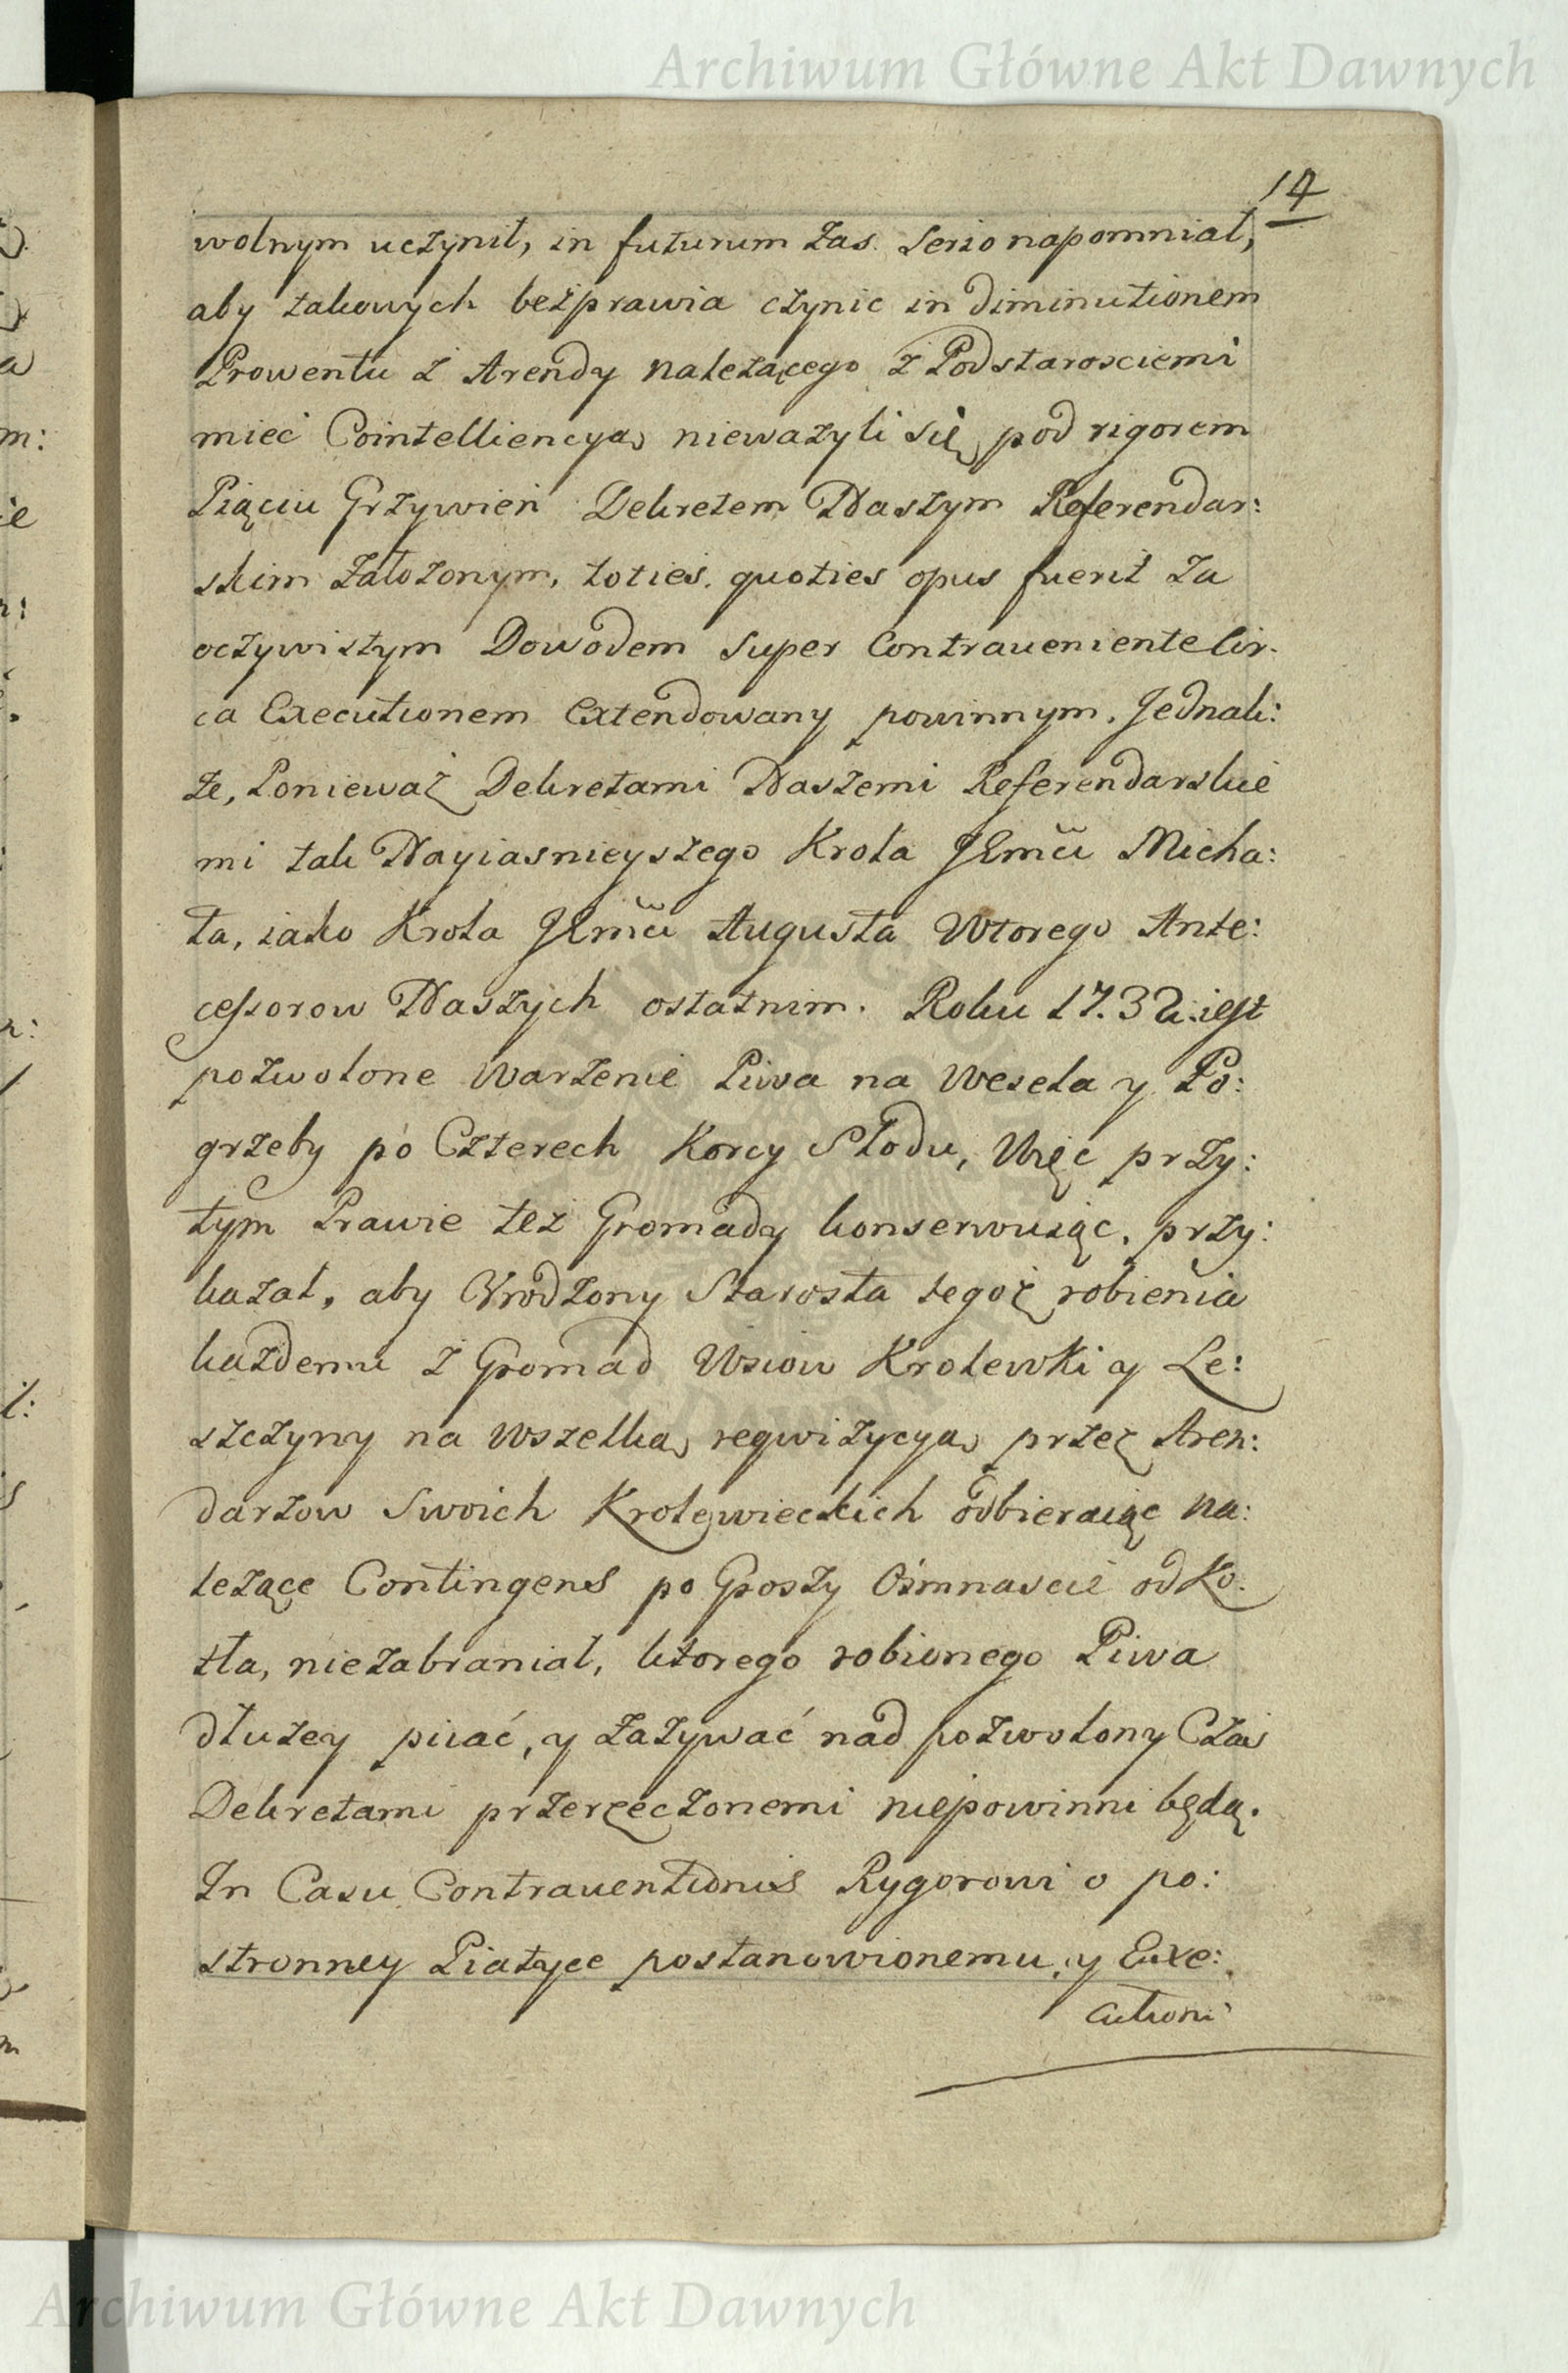 Archiwum Główne Akt Dawnych
14
wolnym uczynił, in futurum zas. serio napomniał,
aby takowych bezprawia czynic in diminutionem
Prowentu z Arendy należącego z Podstarosciemi
miec Cointelliencyą nieważyli się pod rigorem
Piąciu Grzywien Dekretem Naszym Referendar:
skim założonym, toties. quoties opus fuerit za
oczywistym Dowodem super Contraueniente Cir-
ca Executionem Extendowany powinnym. Jednak:
że, Ponieważ Dekretami Naszemi Referendarskie
mi tak Nayiasnieyszego Krola JEmci Micha:
ła, iako Krola JEmci Augusta Wtorego Ante:
cessorow Naszych ostatnim. Roku 17.32. iest
pozwolone Warzenie Piwa na Wesela y Po:
grzeby po Czterech Korcy Słodu, Więc przy:
tym Prawie też Gromady konserwuiąc, przy:
kazał, aby Vrodzony Starosta tegoż robienia
każdemu z Gromad Wsiow Krolewki y Le:
szczyny na Wszelką reqwizycyą przez Aren:
darzow Swoich Krolewieckich odbieraiąc na:
leżące Contingens po Groszy Osmnascie od Ko:
tła, niezabraniał, ktorego robionego Piwa
dłużey piiać, y zażywać nad pozwolony Czas
Dekretami przerzeczonemi niepowinni będą.
In Casu Contrauentionis Rygorowi o po:
stronney Piatyce postanowionemu, y Exe:
cutioni
Archiwum Główne Akt Dawnych